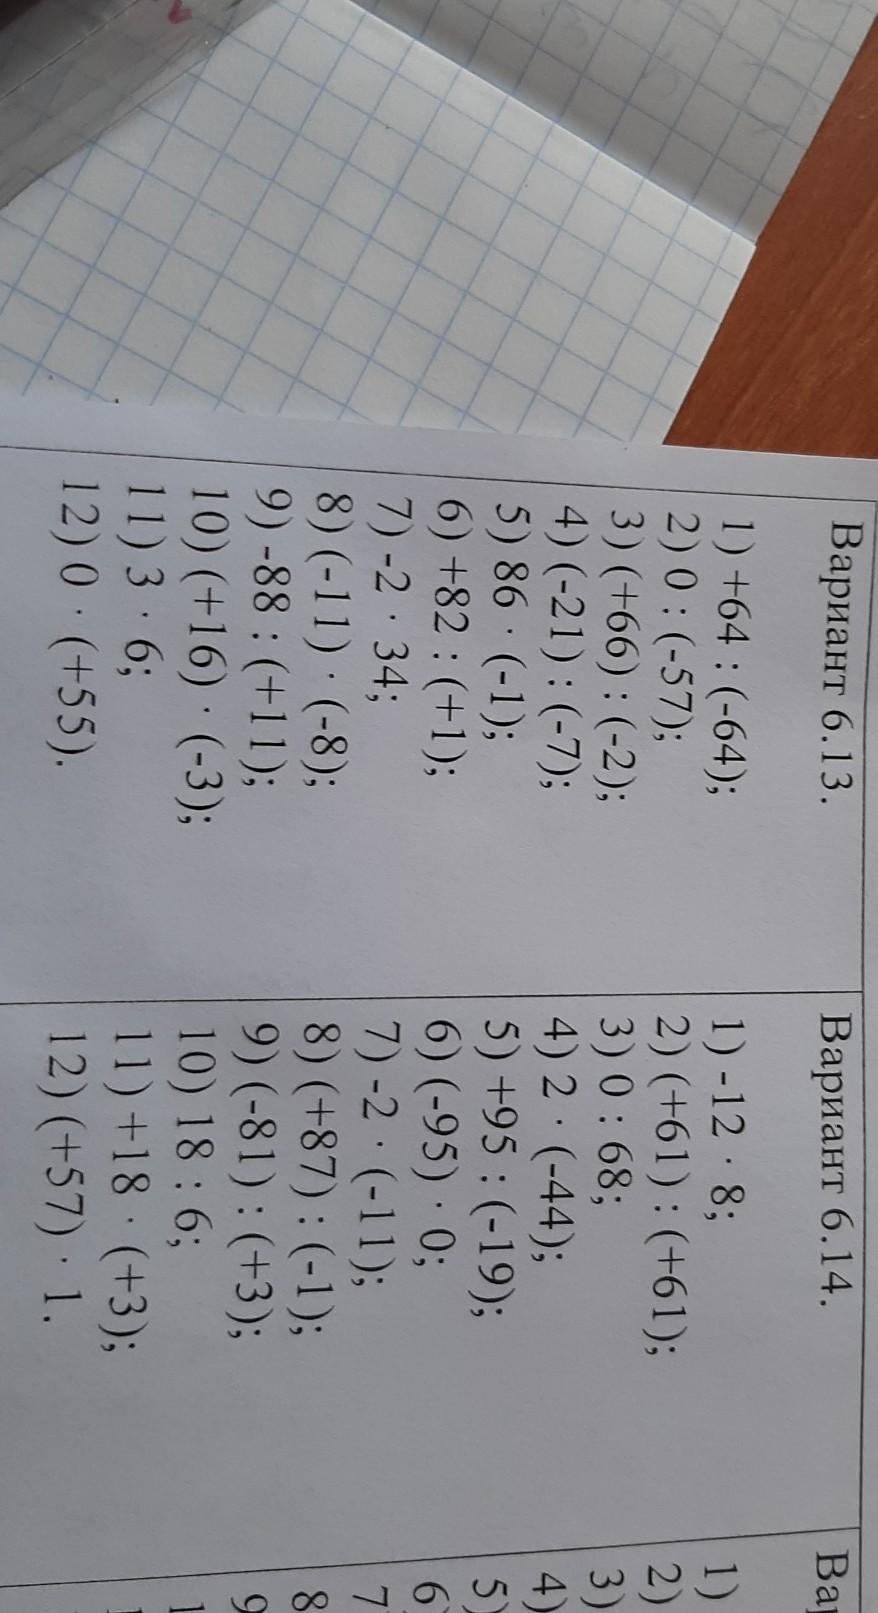 Вариант 6.13.
1) +64 : (-64);
2) 0 : (-57);
3) (+66) : (-2);
4) (-21) : (-7);
5) 86 · (-1);
6) +82 : (+1);
7) -2 · 34;
8) (-11) · (-8);
9) -88 : (+11);
10) (+16) · (-3);
11) 3 · 6;
12) 0 · (+55).
Вариант 6.14.
1) -12 · 8;
2) (+61) : (+61);
3) 0 : 68;
4) 2 · (-44);
5) +95 : (-19);
6) (-95) · 0;
7) -2 · (-11);
8) (+87) : (-1);
9) (-81) : (+3);
10) 18 : 6;
11) +18 · (+3);
12) (+57) · 1.
1)
2)
3)
4)
5)
6
7
8
9